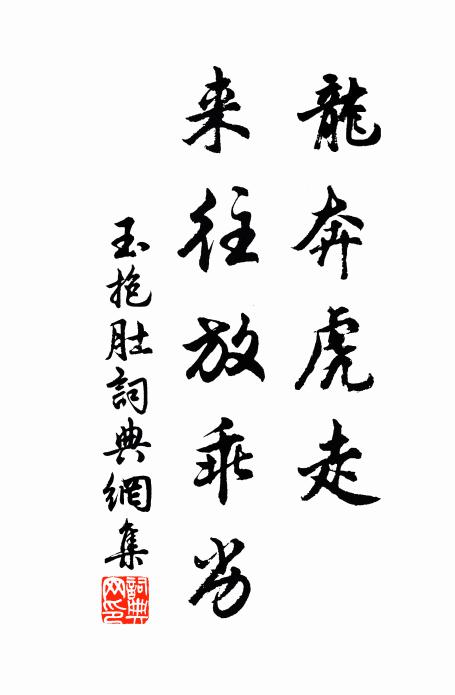 龍奔虎走
来往放乖劣
玉抱肚詞典網集
詞典網印